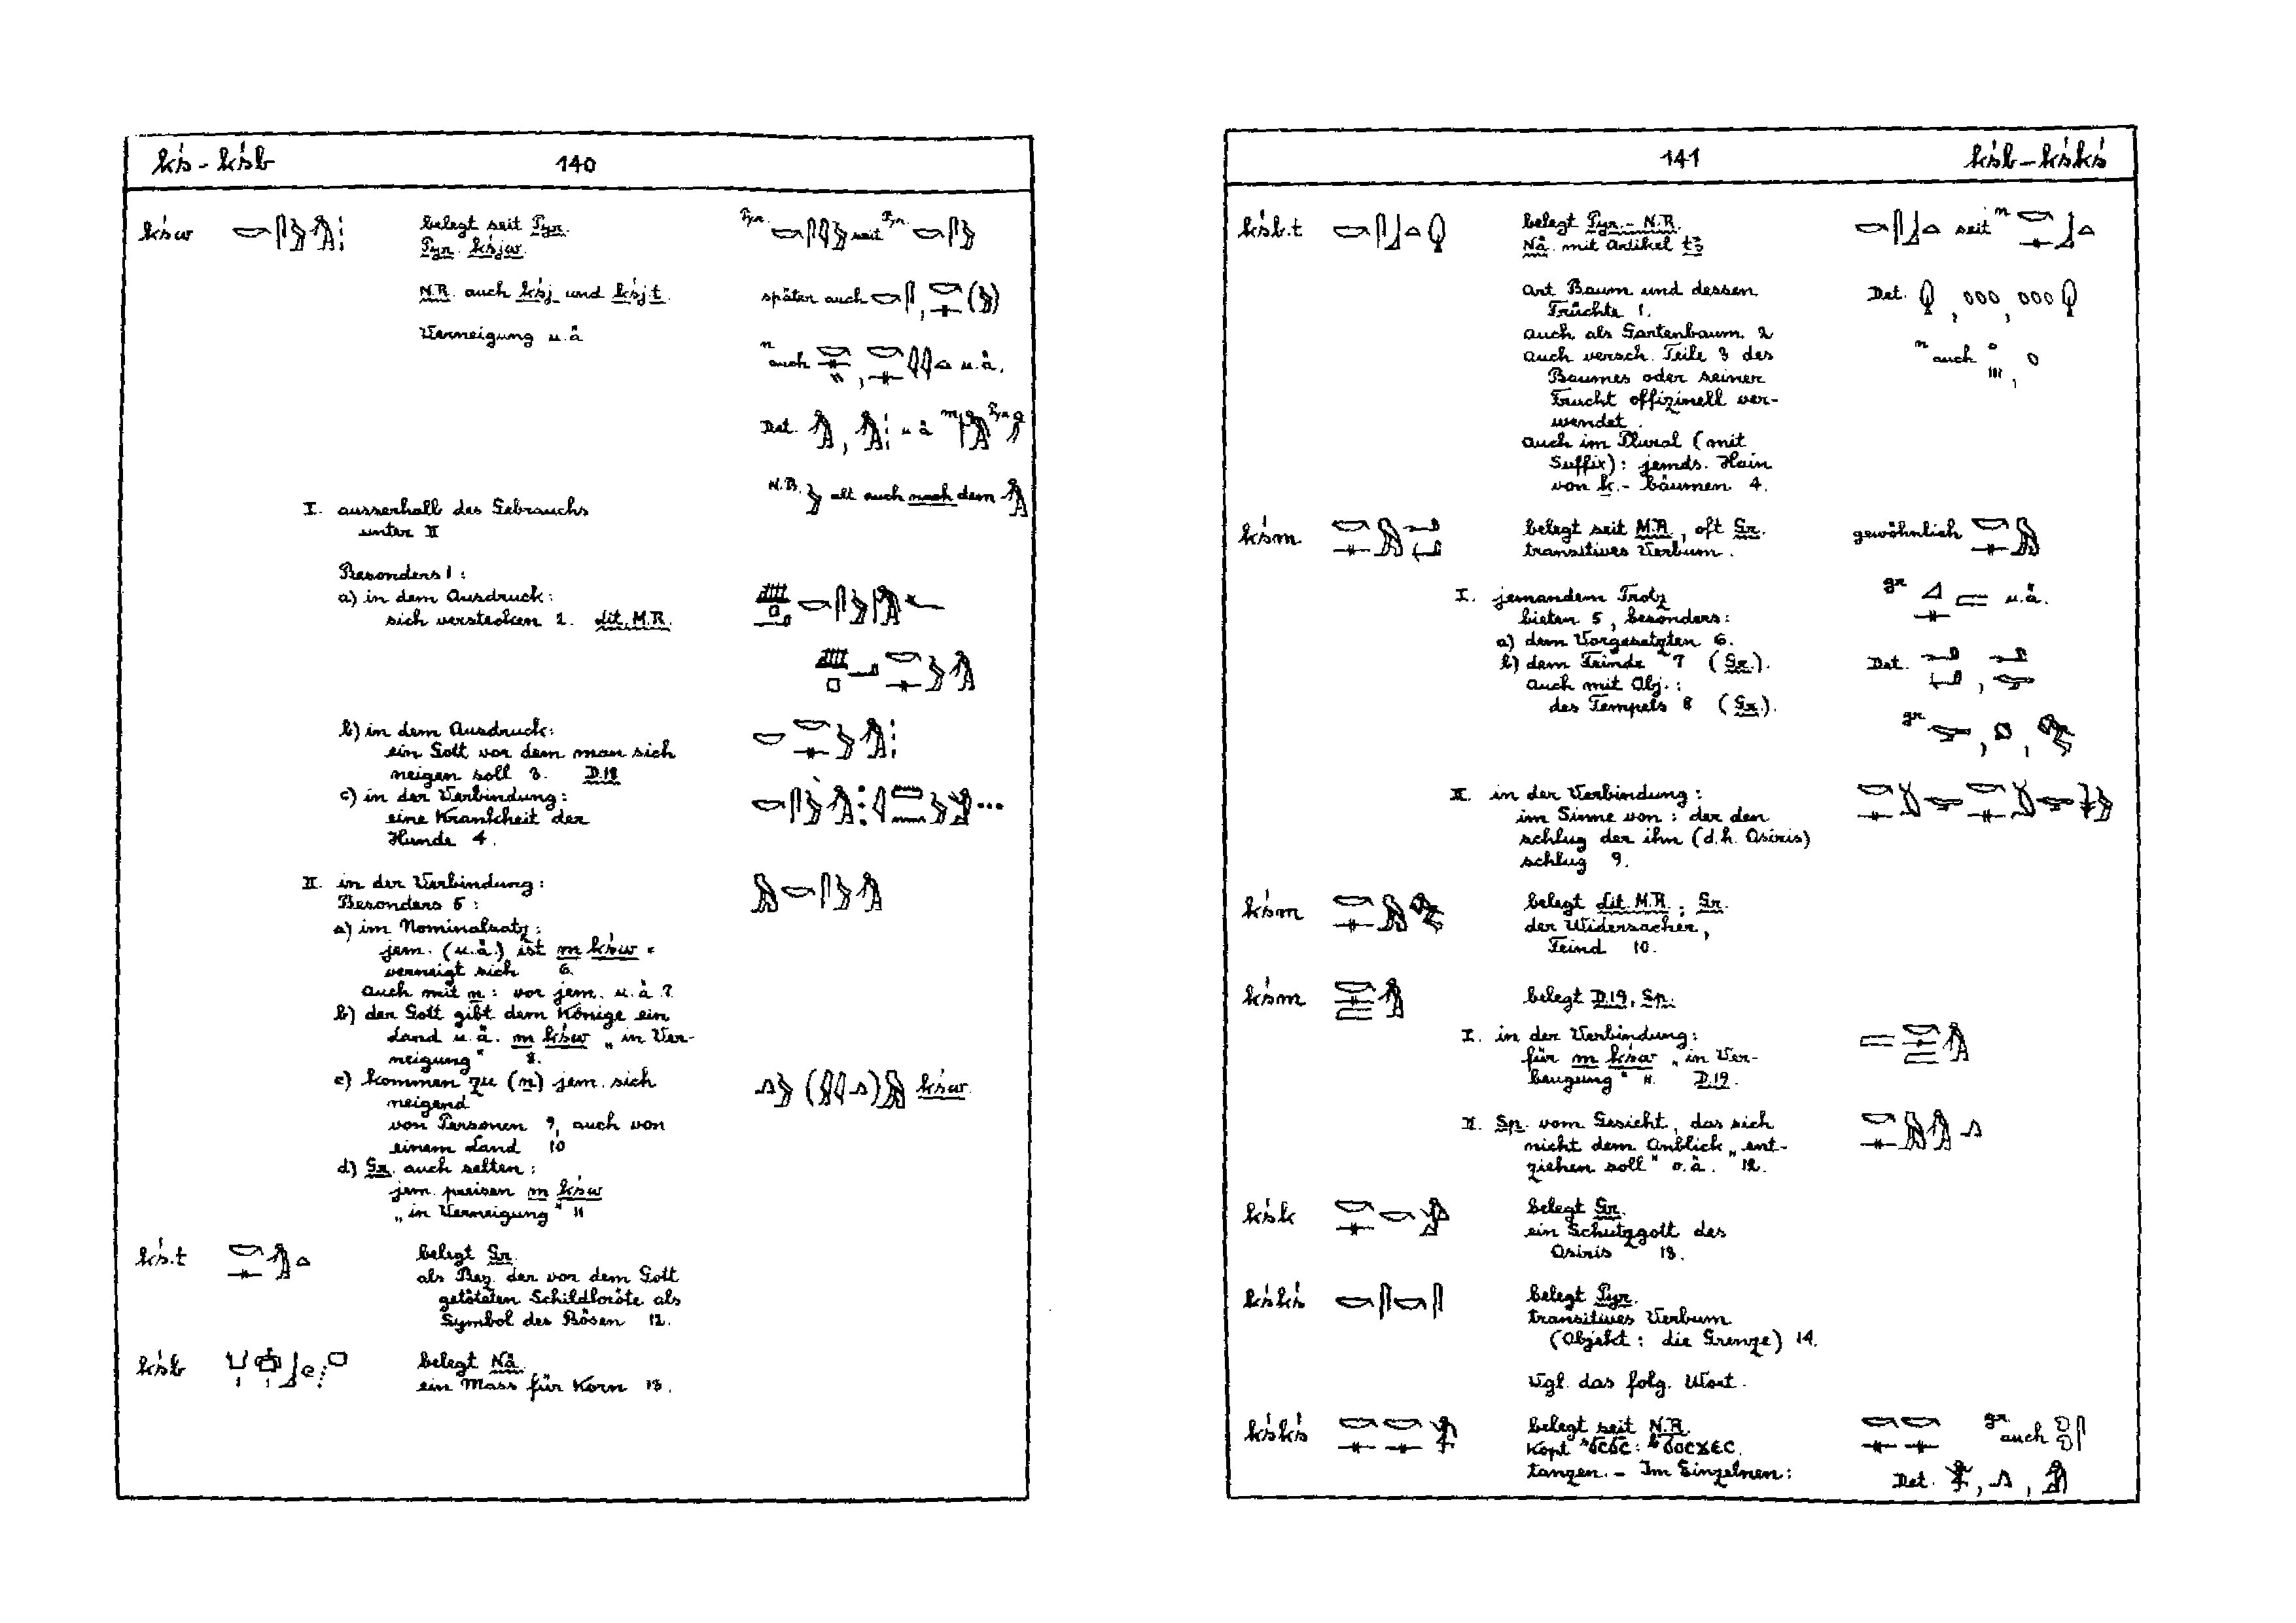 kś - kśb 140
kśw
belegt seit Pyr.
Pyr. kśjw.
Pyr. seit Pyr.
N.R. auch kśj und kśjt.
später auch
Verneigung u.ä
n auch u.ä.
Det. u ä
N.B. alt auch nach dem
I. ausserhalb des Gebrauchs
unter II
Besonders 1:
a) in dem Ausdruck:
sich verstecken 2. Lit. M.R.
b) in dem Ausdruck:
ein Gott vor dem man sich
neigen soll 3. D.18
c) in der Verbindung:
eine Krankheit der
Hunde 4.
II. in der Verbindung:
Besonders 5:
a) im Nominalsatz:
jem. (u.ä.) ist m kśw =
verneigt sich 6.
auch mit n: vor jem. u.ä 7.
b) der Gott gibt dem Könige ein
Land u.ä. m kśw „in Ver-
neigung" 8.
c) kommen zu (n) jem. sich
neigend
kśw.
von Personen 9, auch von
einem Land 10
d) Gr. auch selten:
jem. preisen m kśw
„in Verneigung" 11
kś.t
belegt Gr.
als Bez. der vor dem Gott
getöteten Schildkröte als
Symbol des Bösen 12.
kśb
belegt Nä.
ein Mass für Korn 13.
141 kśb - kśkś
kśb.t
belegt Pyr. - N.R.
Nä. mit Artikel tꜣ
seit n
Art Baum und dessen
Früchte 1.
Det.
auch als Gartenbaum. 2
auch versch. Teile 3 des
Baumes oder seiner
Frucht offizinell ver-
wendet.
n auch
auch im Plural (mit
Suffix): jemds. Hain
von k.- bäumen 4.
kśm.
belegt seit M.R., oft Gr.
transitives Verbum.
gewöhnlich
I. jemandem Trotz
bieten 5, besonders:
gr u.ä.
a) dem Vorgesetzten 6.
b) dem Feinde 7 (Gr.).
auch mit Obj.:
des Tempels 8 (Gr.).
Det.
gr
II. in der Verbindung:
im Sinne von: der den
schlug der ihn (d.h. Osiris)
schlug 9.
kśm
belegt Lit. M.R.; Gr.
der Widersacher,
Feind 10.
kśm
belegt D.19, Sp.
I. in der Verbindung:
für m kśw „in Ver-
beugung" 11. D.19.
II. Sp. vom Gesicht, das sich
nicht dem Anblick „ent-
ziehen soll" o.ä. 12.
kśk
belegt Gr.
ein Schutzgott des
Osiris 13.
kśkś
belegt Pyr.
transitives Verbum
(Objekt: die Grenze) 14.
Vgl. das folg. Wort.
kśkś
belegt seit N.R.
tanzen. - Im Einzelnen:
gr auch
Det.